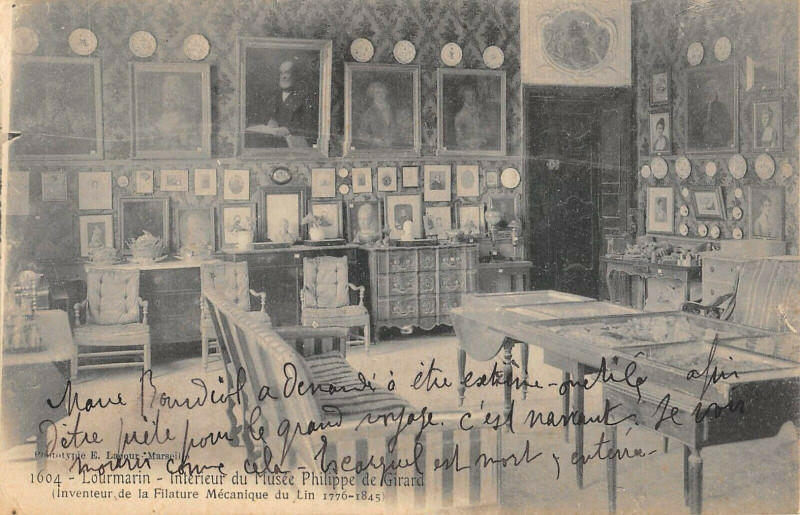 Marie Bourdiol a demandé à être extrême-onctiée afin
d'être prête pour le grand voyage. c'est navrant. Je vois
mourir comme cela - Escarguel est mort, enterré -
Phototypie E. Lacour. Marseille
1604 - Lourmarin - Intérieur du Musée Philippe de Girard
(Inventeur de la Filature Mécanique du Lin 1776-1845)